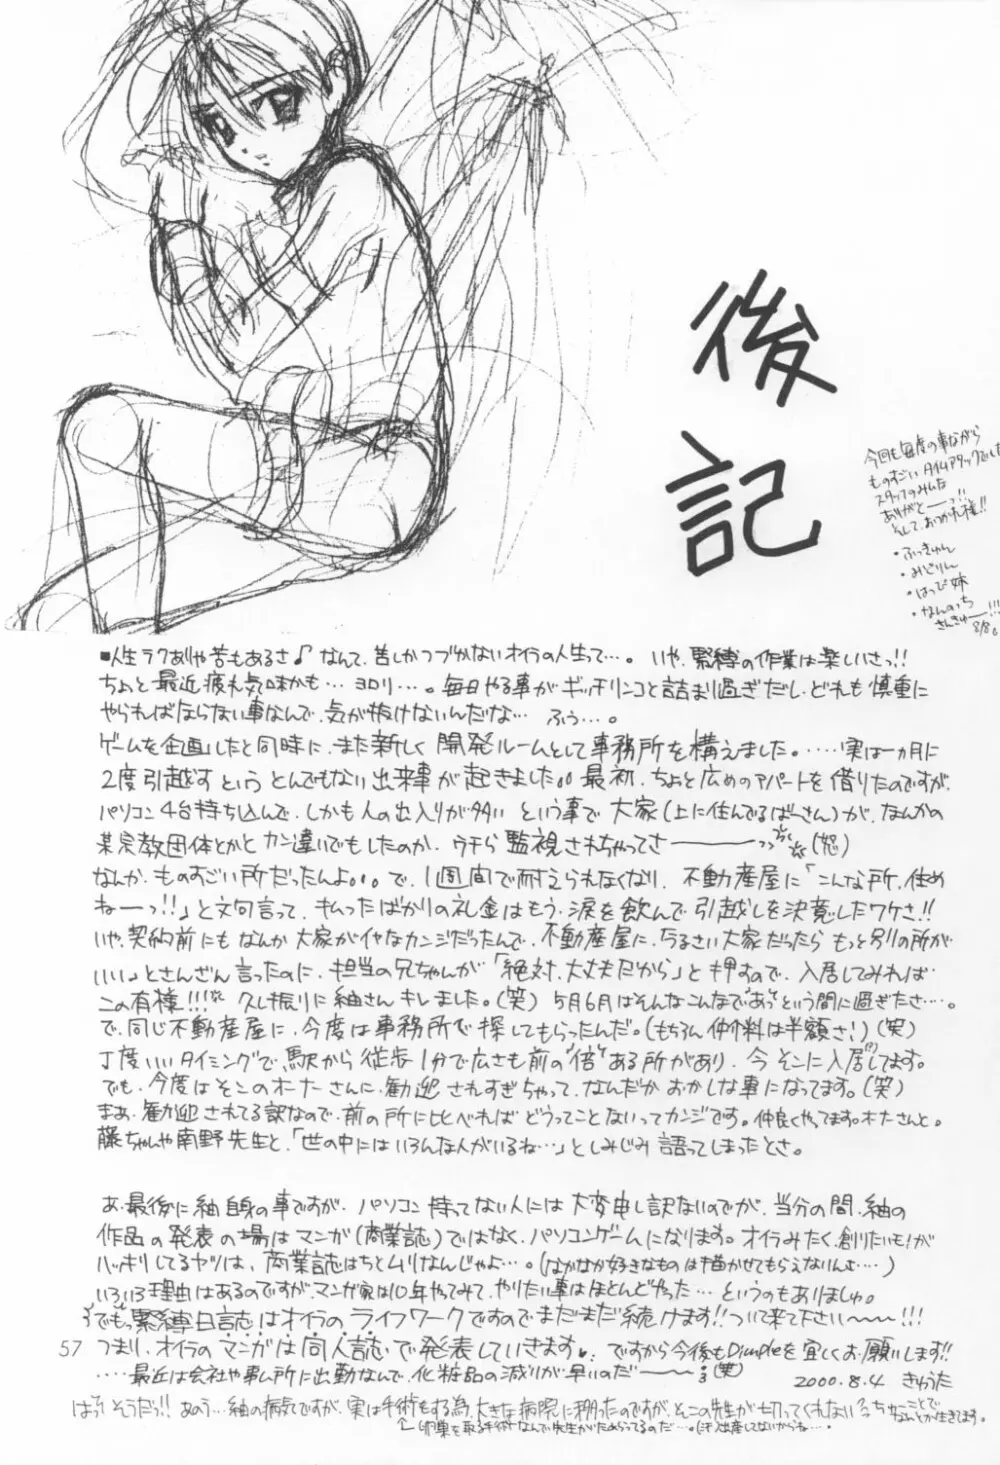 後記
今回も毎度の事ながら
ものすごいタイムアタックでした
スタッフのみんな
ありがとーっ!!
そして、おつかれ様!!
・ふっきゅん
・みどりん
・はっぴ姉
・なんのいち
さんきゅー!!!
8/8。
■人生ラクありゃ苦もあるさ♪ なんて、苦しかつづかないオイラの人生って…。いや、緊縛の作業は楽しいさっ!!
ちょっと最近疲れ気味かも…ヨロリ…。毎日やる事がギッチリンコと詰まり過ぎだし、どれも慎重に
やらればならない事なんで、気が抜けないんだな… ふぅ…。
ゲームを企画したと同時に、また新しく開発ルームとして事務所を構えました。……実は一ヵ月に
2度引越すというとんでもない出来事が起きました。。最初、ちょっと広めのアパートを借りたのですが、
パソコン4台持ち込んで、しかも人の出入りが多いという事で大家(上に住んでるばーさん)が、なんかの
某宗教団体とかとカン違いでもしたのか、ウチら監視されちゃってさーーーっっ(怒)
なんか、ものすごい所だったんよ。。。で、1週間で耐えられなくなり、不動産屋に「こんな所、住め
ねーっ!!」と文句言って、払ったばかりの礼金はもう、涙を飲んで引越しを決意したワケさ!!
いや、契約前にもなんか大家がイヤなカンジだったんで、不動産屋に、うるさい大家だったらもっと別の所が
いいっとさんざん言ったのに、担当の兄ちゃんが「絶対、大丈夫だから」と押すので、入居してみれば
この有様!!! 久し振りに紬さんキレました。(笑) 5月6月はそんなこんなで“あっ”という間に過ぎたさ…。
で、同じ不動産屋に、今度は事務所で探してもらったんだ。(もちろん仲介料は半額さ!)(笑)
丁度いいタイミングで、駅から徒歩1分で広さも前の“倍”ある所があり、今そこに入居してます。
でも、今度はそこのオーナーさんに、勧迎されすぎちゃって、なんだかおかしな事になってます。(笑)
まあ、勧迎されてる訳なので、前の所に比べればどうってことないってカンジです。仲良くやってます。オーナーさんと。
藤ちゃんや南野先生と、「世の中にはいろんな人がいるね…」としみじみ語ってしまったとさ。
あ、最後に紬自身の事ですが、パソコン持ってない人には大変申し訳ないのですが、当分の間、紬の
作品の発表の場はマンガ(商業誌)ではなく、パソコンゲームになります。オイラみたく、創りたいモノが
ハッキリしてるヤツは、商業誌はちとムリなんじゃよ…。(なかなか好きなものは描かせてもらえないんよ…)
いろいろ理由はあるのですが、マンガ家は10年やってみて、やりたい事はほとんどやった…というのもありましゅ。
でもっ緊縛日誌はオイラのライフワークですのでまだまだ続けます!!ついて来て下さい〜〜!!!
つまり、オイラのマンガは同人誌で発表していきます♥ ですから今後もDimpleを宜しくお願いします!!
……最近は会社や事ム所に出勤なんで、化粧品の減りが早いのだーー;(笑)
2000.8.4 きゅうた
はっ、そうだっ!!あのう…紬の病気ですが、実は手術をする為、大きな病院に移ったのですが、そこの先生が切ってくれないっちゅーことでなんとか生きてます。
└卵巣を取る手術なんで先生がためらってるのだ…。(まだ出産してないからね…。
57